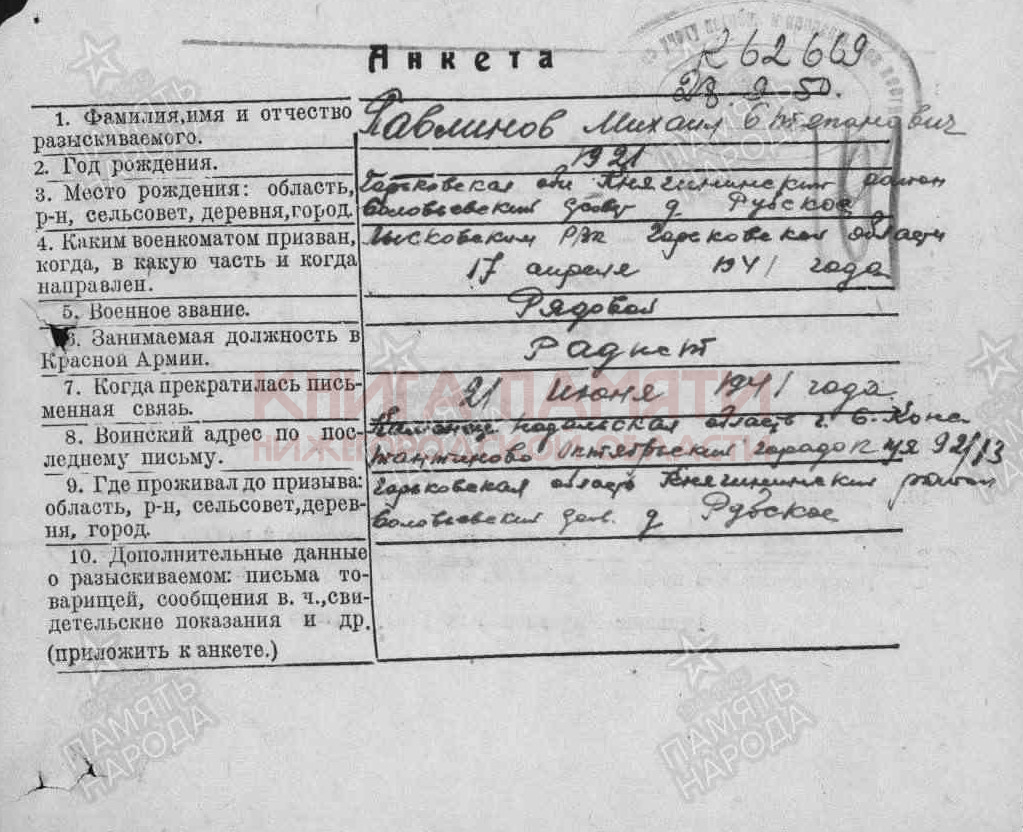 Анкета
К 62669
28 9 50.
1. Фамилия,имя и отчество
разыскиваемого.
Павлинов Михаил Степанович
2. Год рождения.
1921
3. Место рождения: область,
р-н, сельсовет, деревня,город.
Горьковская обл Княгининский район
Соловьевский д Рубское
4. Каким военкоматом призван,
когда, в какую часть и когда
направлен.
Лысковским РВК Горьковской области
17 апреля 1941 года
5. Военное звание.
Рядовой
6. Занимаемая должность в
Красной Армии.
Радист
7. Когда прекратилась пись-
менная связь.
21 июня 1941 года
8. Воинский адрес по пос-
леднему письму.
Каменец Подольская область г. С. Конс
тантиново Октябрьский городок п/я 92/13
9. Где проживал до призыва:
область, р-н, сельсовет,дерев-
ня, город.
Горьковская область Княгининский район
Соловьевский д Рубское
10. Дополнительные данные
о разыскиваемом: письма то-
варищей, сообщения в. ч.,сви-
детельские показания и др.
(приложить к анкете.)
КНИГА ПАМЯТИ
НИЖЕГОРОДСКОЙ ОБЛАСТИ
ПАМЯТЬ
НАРОДА
ПАМЯТЬ
НАРОДА